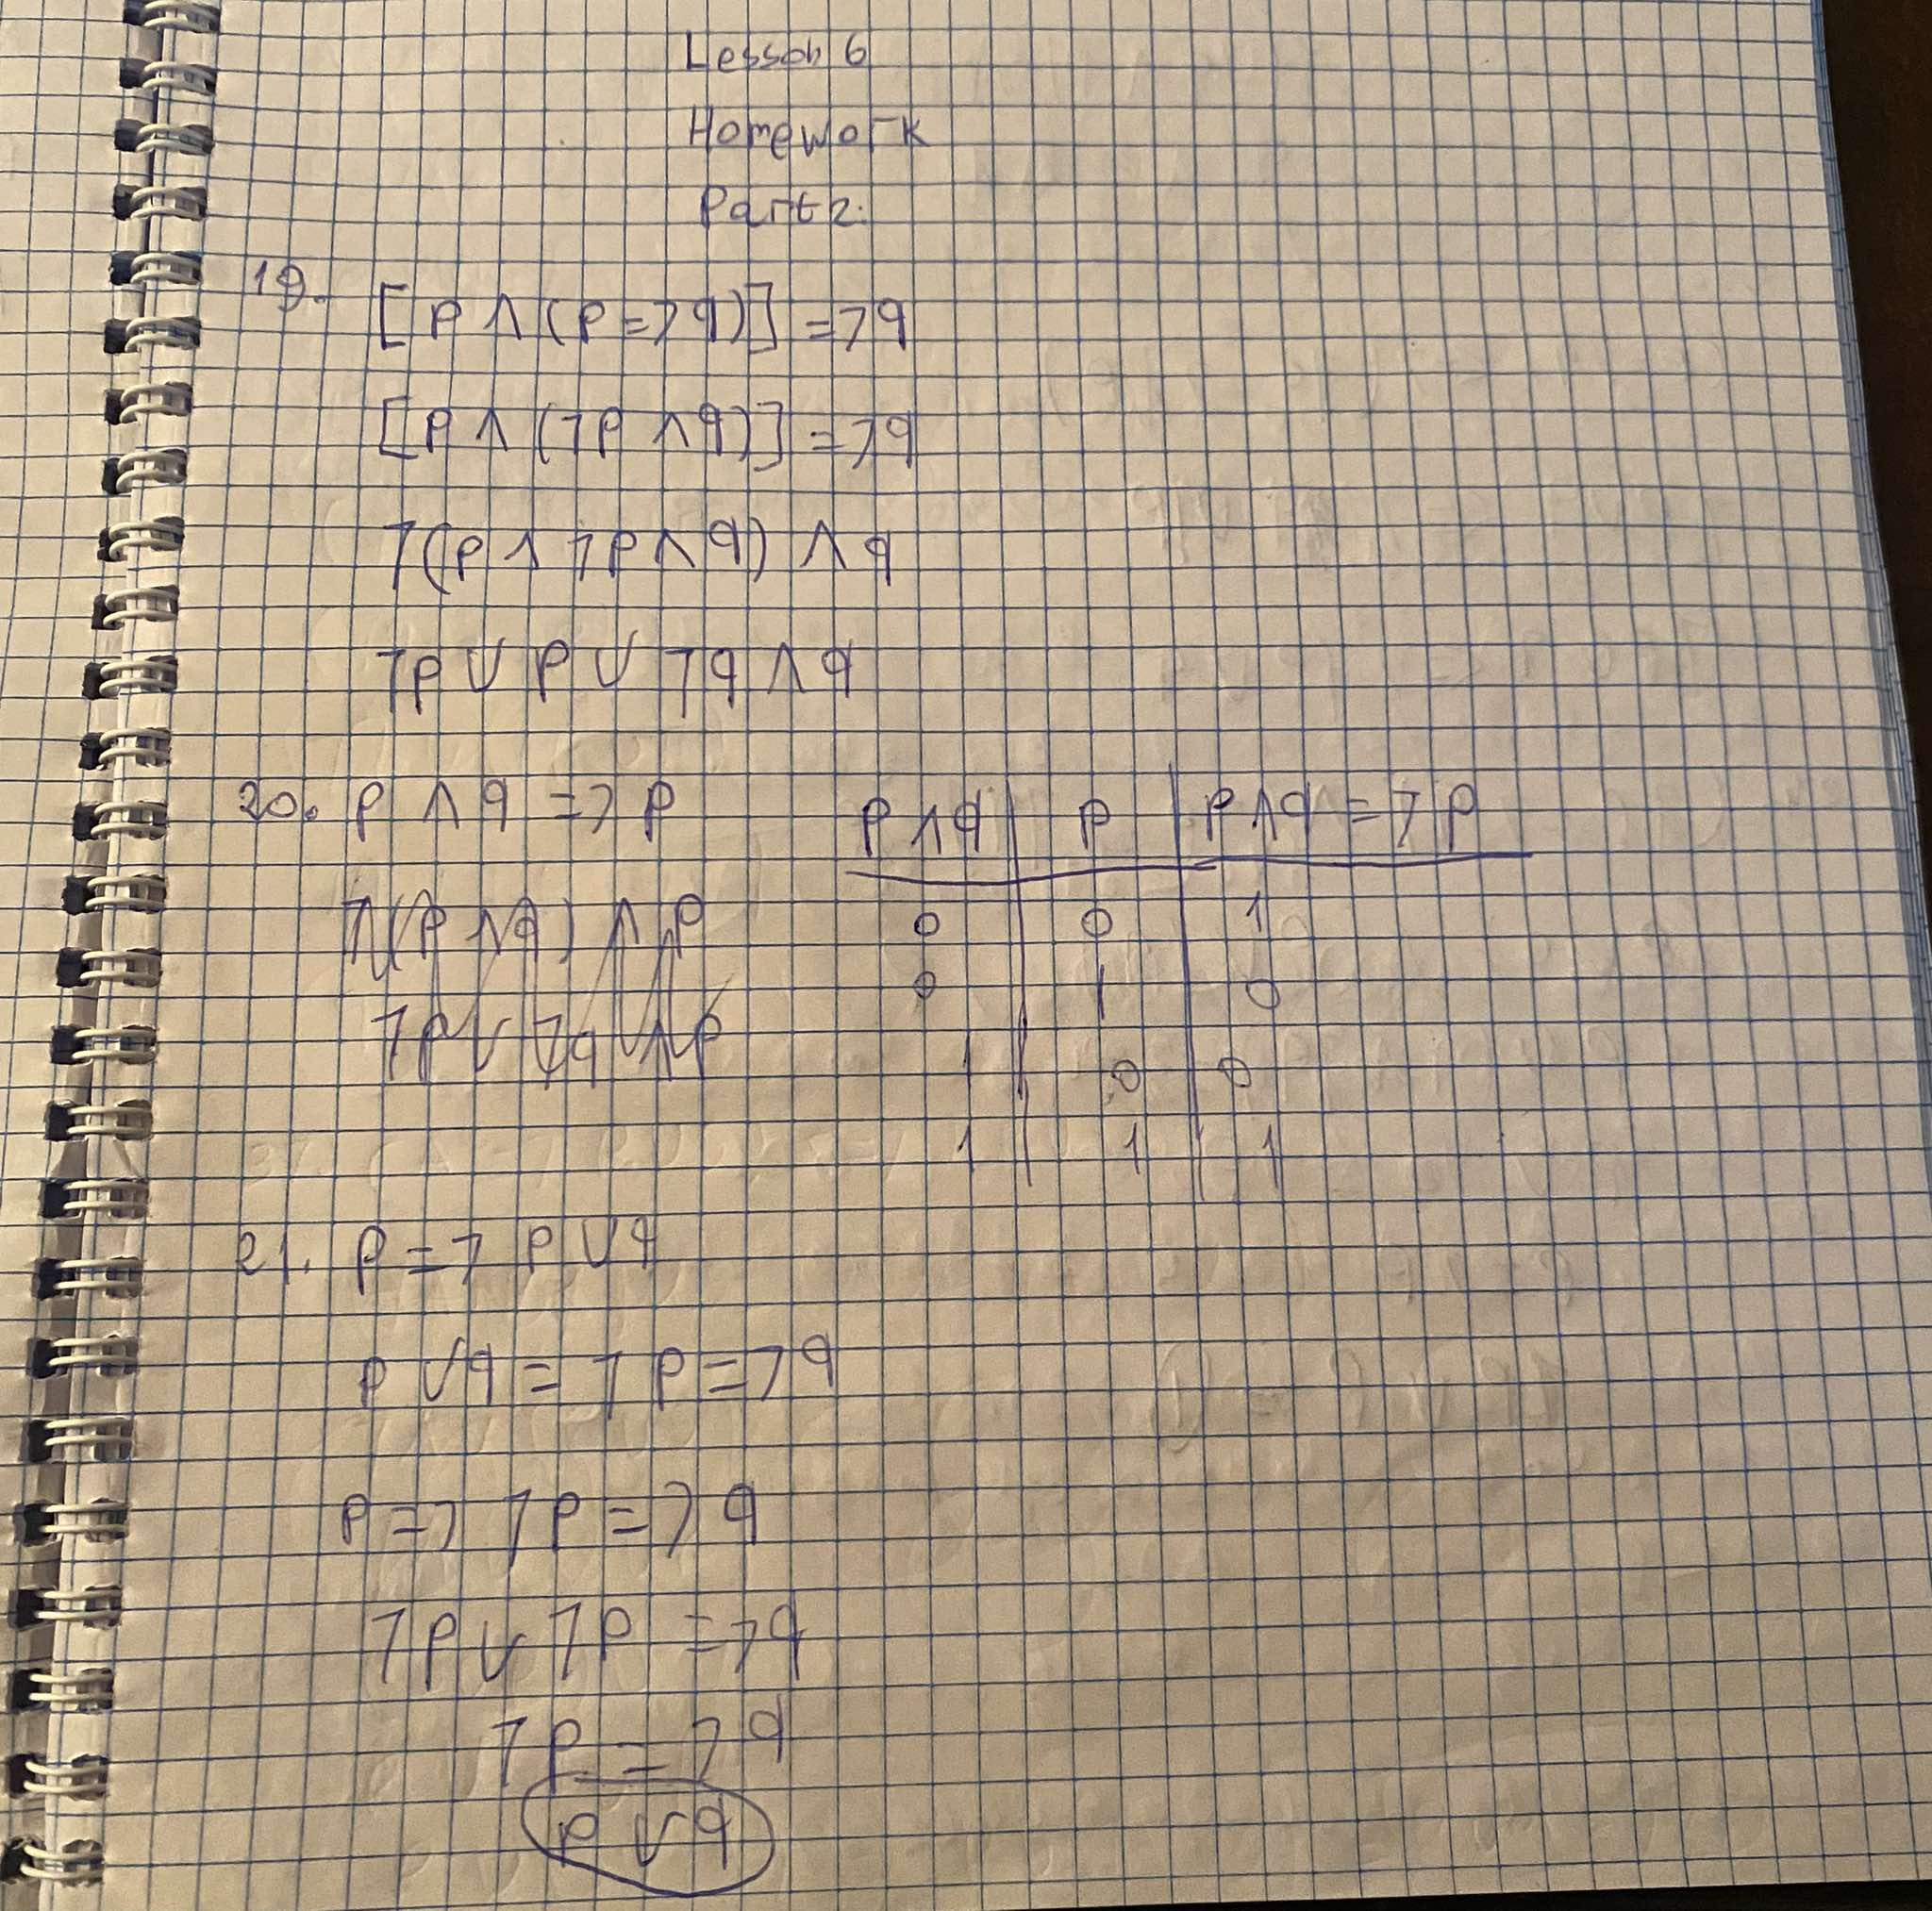 Lesson 6
Homework
Part 2.
19. [P ∧ (P => q)] => q
[P ∧ (¬P ∧ q)] => q
¬(P ∧ ¬P ∧ q) ∧ q
¬P ∨ P ∨ ¬q ∧ q
20. P ∧ q => P
¬(P ∧ q) ∧ P
¬P ∨ ¬q ∧ P
P ∧ q | P | P ∧ q => P
0 | 0 | 1
0 | 1 | 0
1 | 0 | 0
1 | 1 | 1
21. P => P ∨ q
P ∨ q = ¬P => q
P => ¬P => q
¬P ∨ ¬P => q
¬P => q
P ∨ q